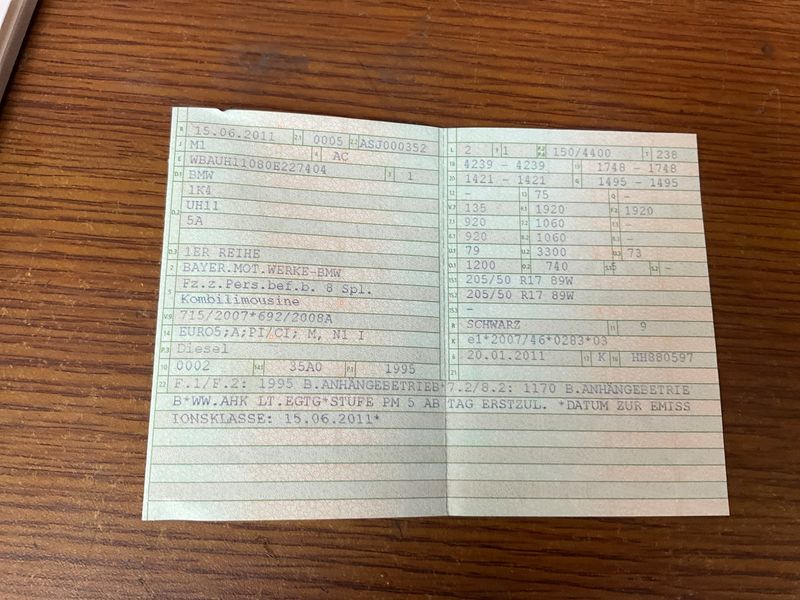 B 15.06.2011 2.1 0005 2.2 ASJ000352
J M1 4 AC
E WBAUH11080E227404 3 1
D.1 BMW
1K4
D.2 UH11
5A
D.3 1ER REIHE
2 BAYER.MOT.WERKE-BMW
5 Fz.z.Pers.bef.b. 8 Spl.
Kombilimousine
V.9 715/2007*692/2008A
14 EURO5;A;PI/CI; M, N1 I
P.3 Diesel
10 0002 14.1 35A0 P.1 1995
L 2 9 1 P.2 P.4 150/4400 T 238
18 4239 - 4239 19 1748 - 1748
20 1421 - 1421 G 1495 - 1495
12 - 13 75 Q -
V.7 135 F.1 1920 F.2 1920
7.1 920 7.2 1060 7.3 -
8.1 920 8.2 1060 8.3 -
U.1 79 U.2 3300 U.3 73
O.1 1200 O.2 740 S.1 5 S.2 -
15.1 205/50 R17 89W
15.2 205/50 R17 89W
15.3 -
R SCHWARZ 11 9
K e1*2007/46*0283*03
6 20.01.2011 17 K 16 HH880597
21
22 F.1/F.2: 1995 B.ANHÄNGEBETRIEB*7.2/8.2: 1170 B.ANHÄNGEBETRIE
B*WW.AHK LT.EGTG*STUFE PM 5 AB TAG ERSTZUL. *DATUM ZUR EMISS
IONSKLASSE: 15.06.2011*